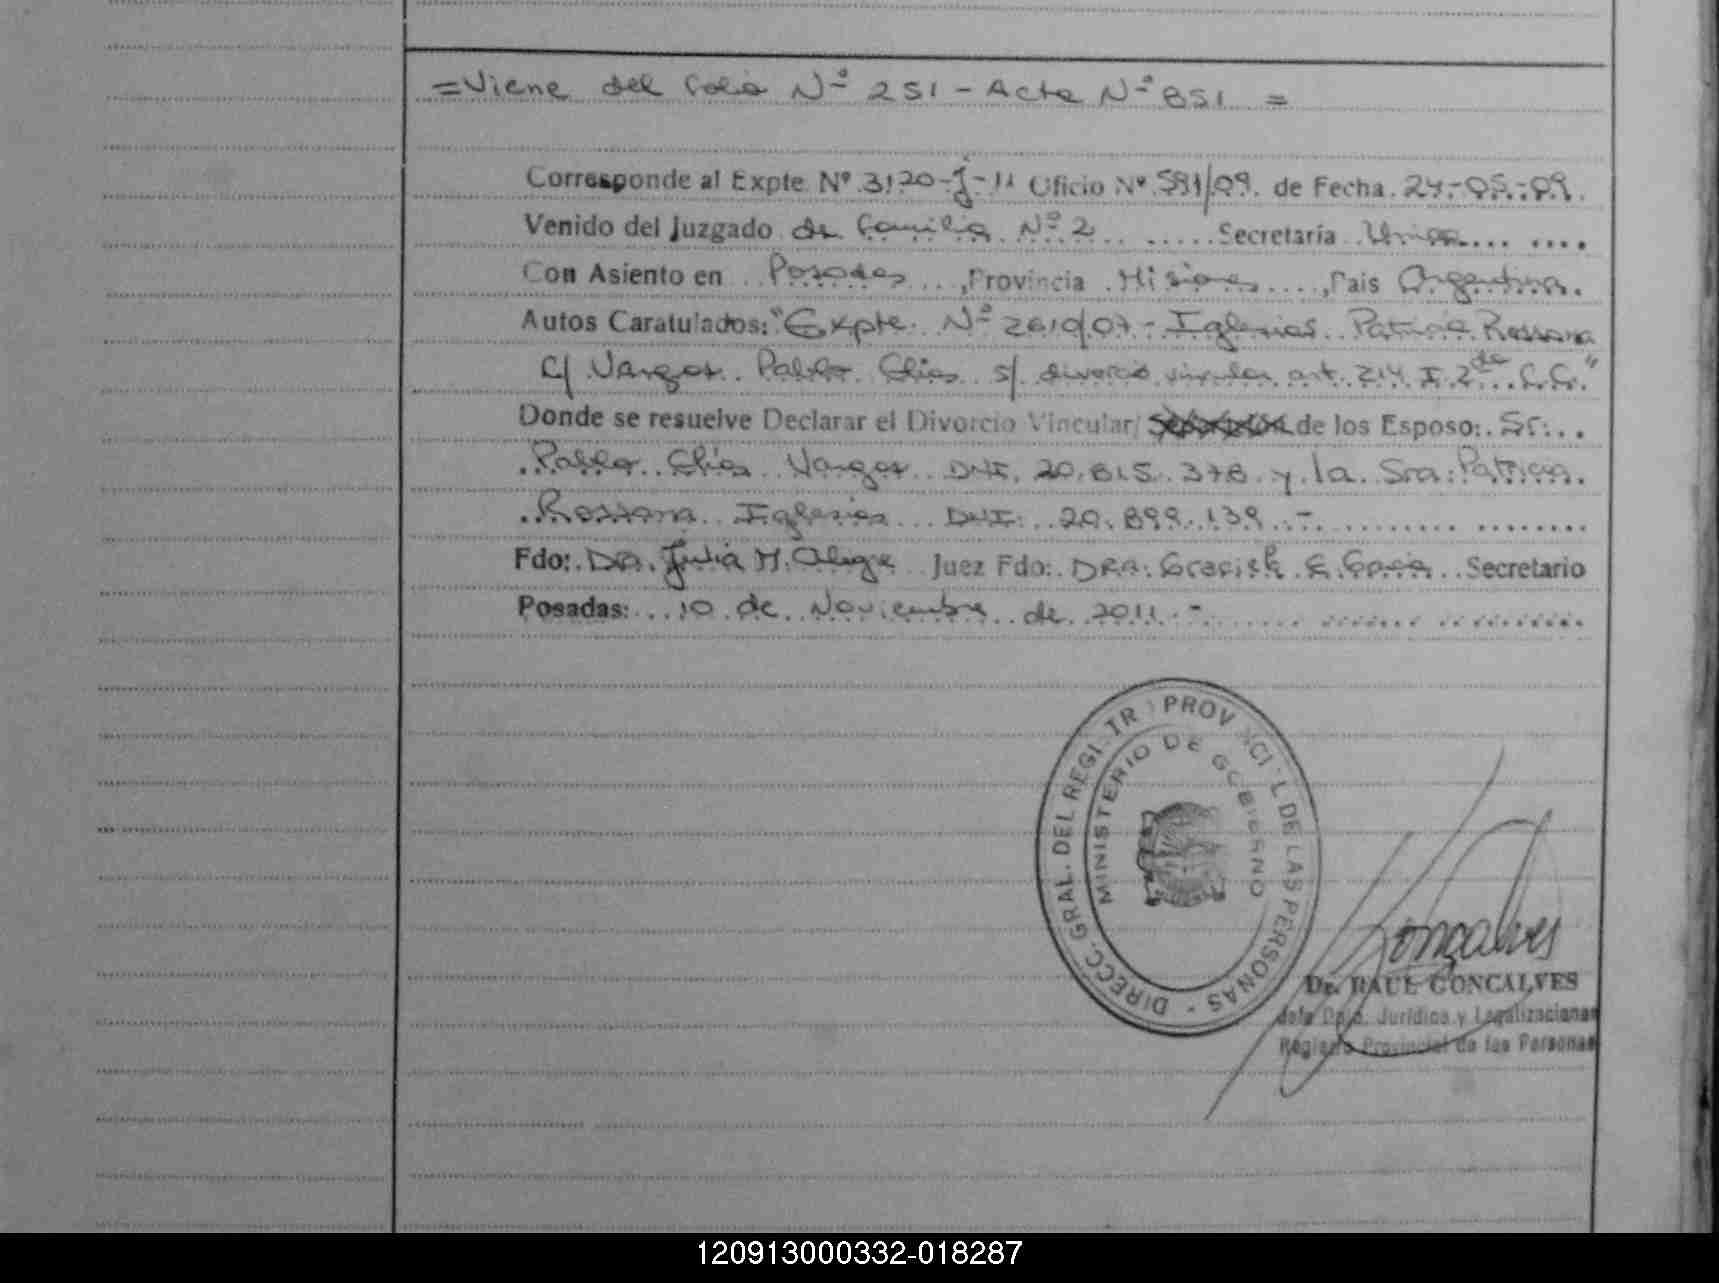 =Viene del folio Nº 251 - Acta Nº 851 =
Corresponde al Expte. Nº 3120-J-11 Oficio Nº 591/09. de Fecha. 24-05-09.
Venido del Juzgado de Familia Nº 2 Secretaría Unica
Con Asiento en Posadas, Provincia Misiones, Pais Argentina.
Autos Caratulados: "Expte. Nº 2610/07- Iglesias Patricia Rossana
c/ Vargas Pablo Elias s/ divorcio vincular art. 214 I. 2da C.C."
Donde se resuelve Declarar el Divorcio Vincular/ de los Esposo: Sr:
Pablo Elias Vargas DNI. 20.815.378 y la Sra: Patricia
Rossana Iglesias DNI: 20.899.139.-
Fdo: DRA. Julia M. Alegre Juez Fdo: DRA. Graciela E. Secretario
Posadas: 10 de Noviembre de 2011.-
DIRECC. GRAL. DEL REGISTR PROV CIVIL DE LAS PERSONAS -
MINISTERIO DE GOBIERNO
Goncalves
Dr. RAUL GONCALVES
Jefe Dpto. Jurídico y Legalizaciones
Registro Provincial de las Personas
120913000332-018287